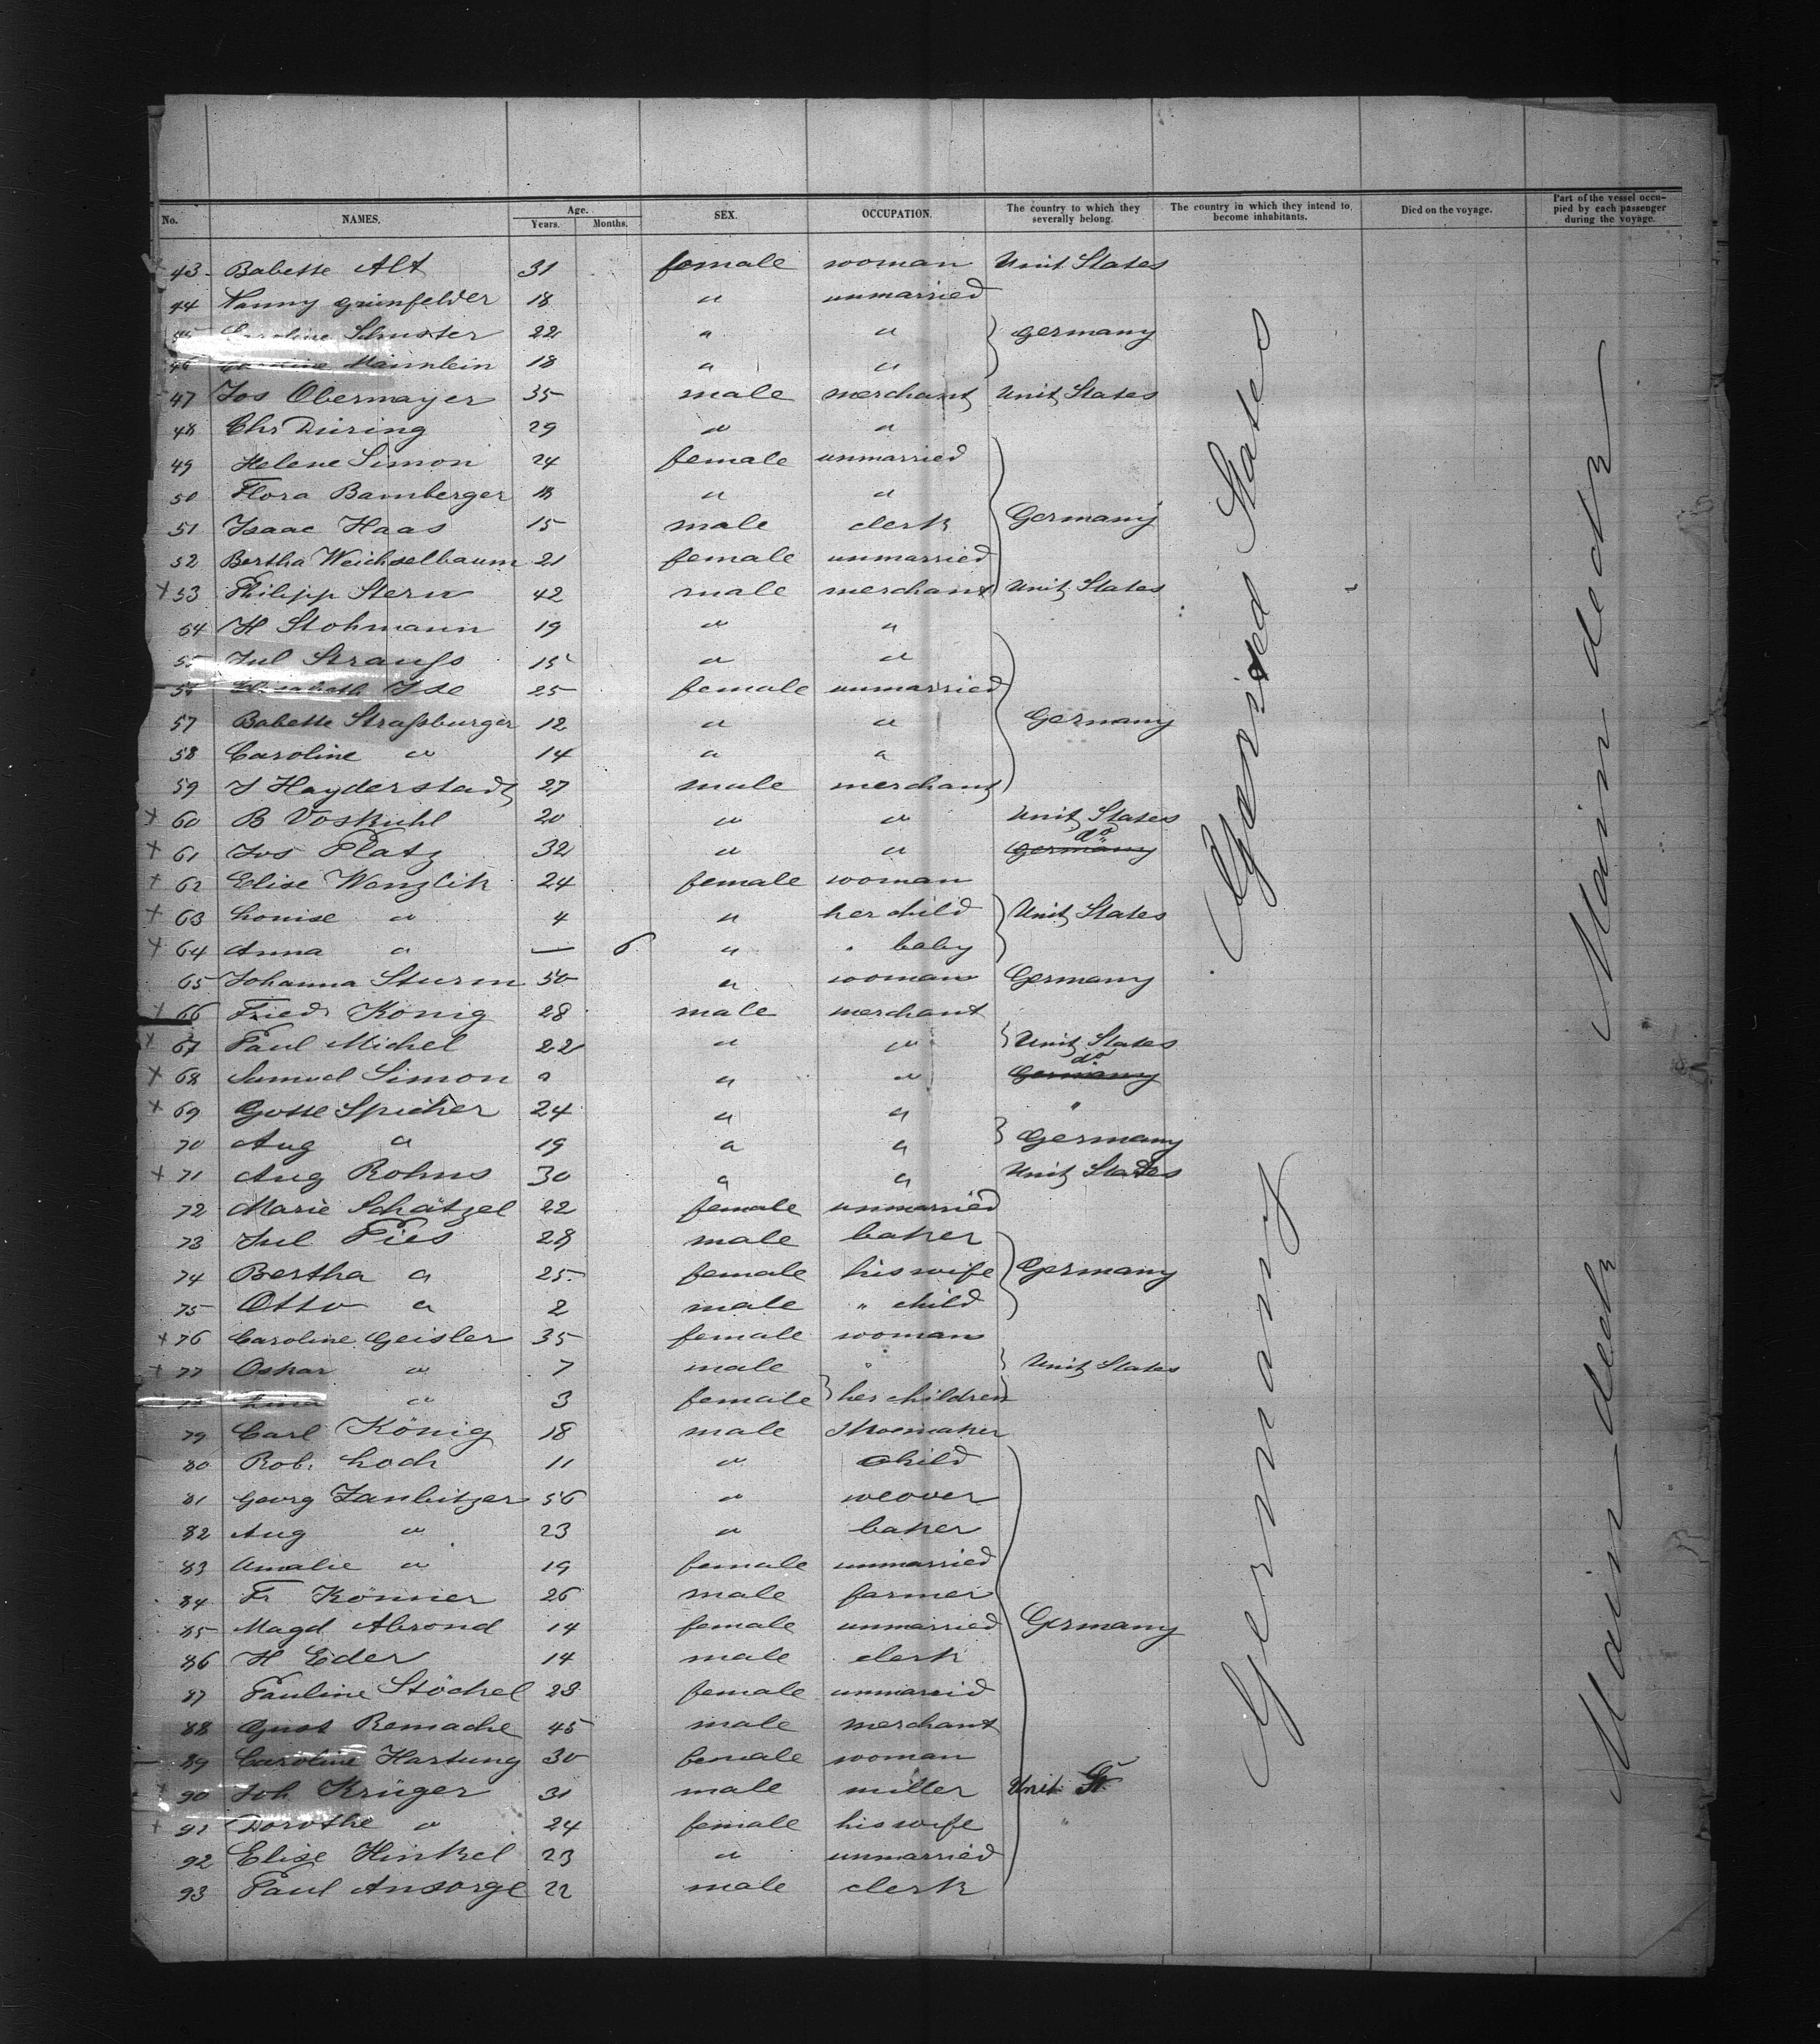 No. NAMES. Age. Years. Months. SEX. OCCUPATION. The country to which they severally belong. The country in which they intend to become inhabitants. Died on the voyage. Part of the vessel occupied by each passenger during the voyage.
43 Babette Alt 31 female woman Unit States
44 Nanny Grünfelder 18 " unmarried
45 Caroline Schuster 22 " " Germany
46 Caroline Männlein 18 " "
47 Jos Obermayer 35 male merchant Unit States
48 Chr Düring 29 " "
49 Helene Simon 24 female unmarried
50 Flora Bamberger 18 " "
51 Isaac Haas 15 male clerk Germany
52 Bertha Weichselbaum 21 female unmarried
+ 53 Philipp Stern 42 male merchant Unit States
54 H Stohmann 19 " "
55 Jul Strauss 15 " "
56 Elisabeth Ise 25 female unmarried
57 Babette Straßburger 12 " " Germany
58 Caroline " 14 " "
59 J Hayderstadt 27 male merchant
+ 60 B Voskuhl 20 " " Unit States
+ 61 Jos Platz 32 " " Germany do
+ 62 Elise Wanzlik 24 female woman
+ 63 Louise " 4 " her child Unit States
+ 64 Anna " — 6 " " baby
65 Johanna Sturm 50 " woman Germany
+ 66 Friedr König 28 male merchant
+ 67 Paul Michel 22 " " Unit States
+ 68 Samuel Simon " " " Germany do
+ 69 Gotte Spicker 24 " " "
70 Aug " 19 " " Germany
+ 71 Aug Rohns 30 " " Unit States
72 Marie Schätzel 22 female unmarried
73 Jul Fies 28 male baker
74 Bertha " 25 female his wife Germany
75 Otto " 2 male " child
+ 76 Caroline Geisler 35 female woman
+ 77 Oskar " 7 male " Unit States
78 Lina " 3 female her children
79 Carl König 18 male Shoemaker
80 Rob. Loch 11 " child
81 Georg Zanbitzer 56 " weover
82 Aug " 23 " baker
83 Amalie " 19 female unmarried
84 Fr Könner 26 male farmer
85 Magd Abrond 14 female unmarried Germany
86 H Eder 14 male clerk
87 Pauline Stöckel 23 female unmarrid
88 Gust Remache 45 male merchant
89 Caroline Hartung 30 female woman
+ 90 Joh Krüger 31 male miller Unit St.
+ 91 Dorothe " 24 female his wife "
92 Elise Hinkel 23 " unmarried
93 Paul Ansorge 22 male clerk
Germany
States
Main deck
Main deck